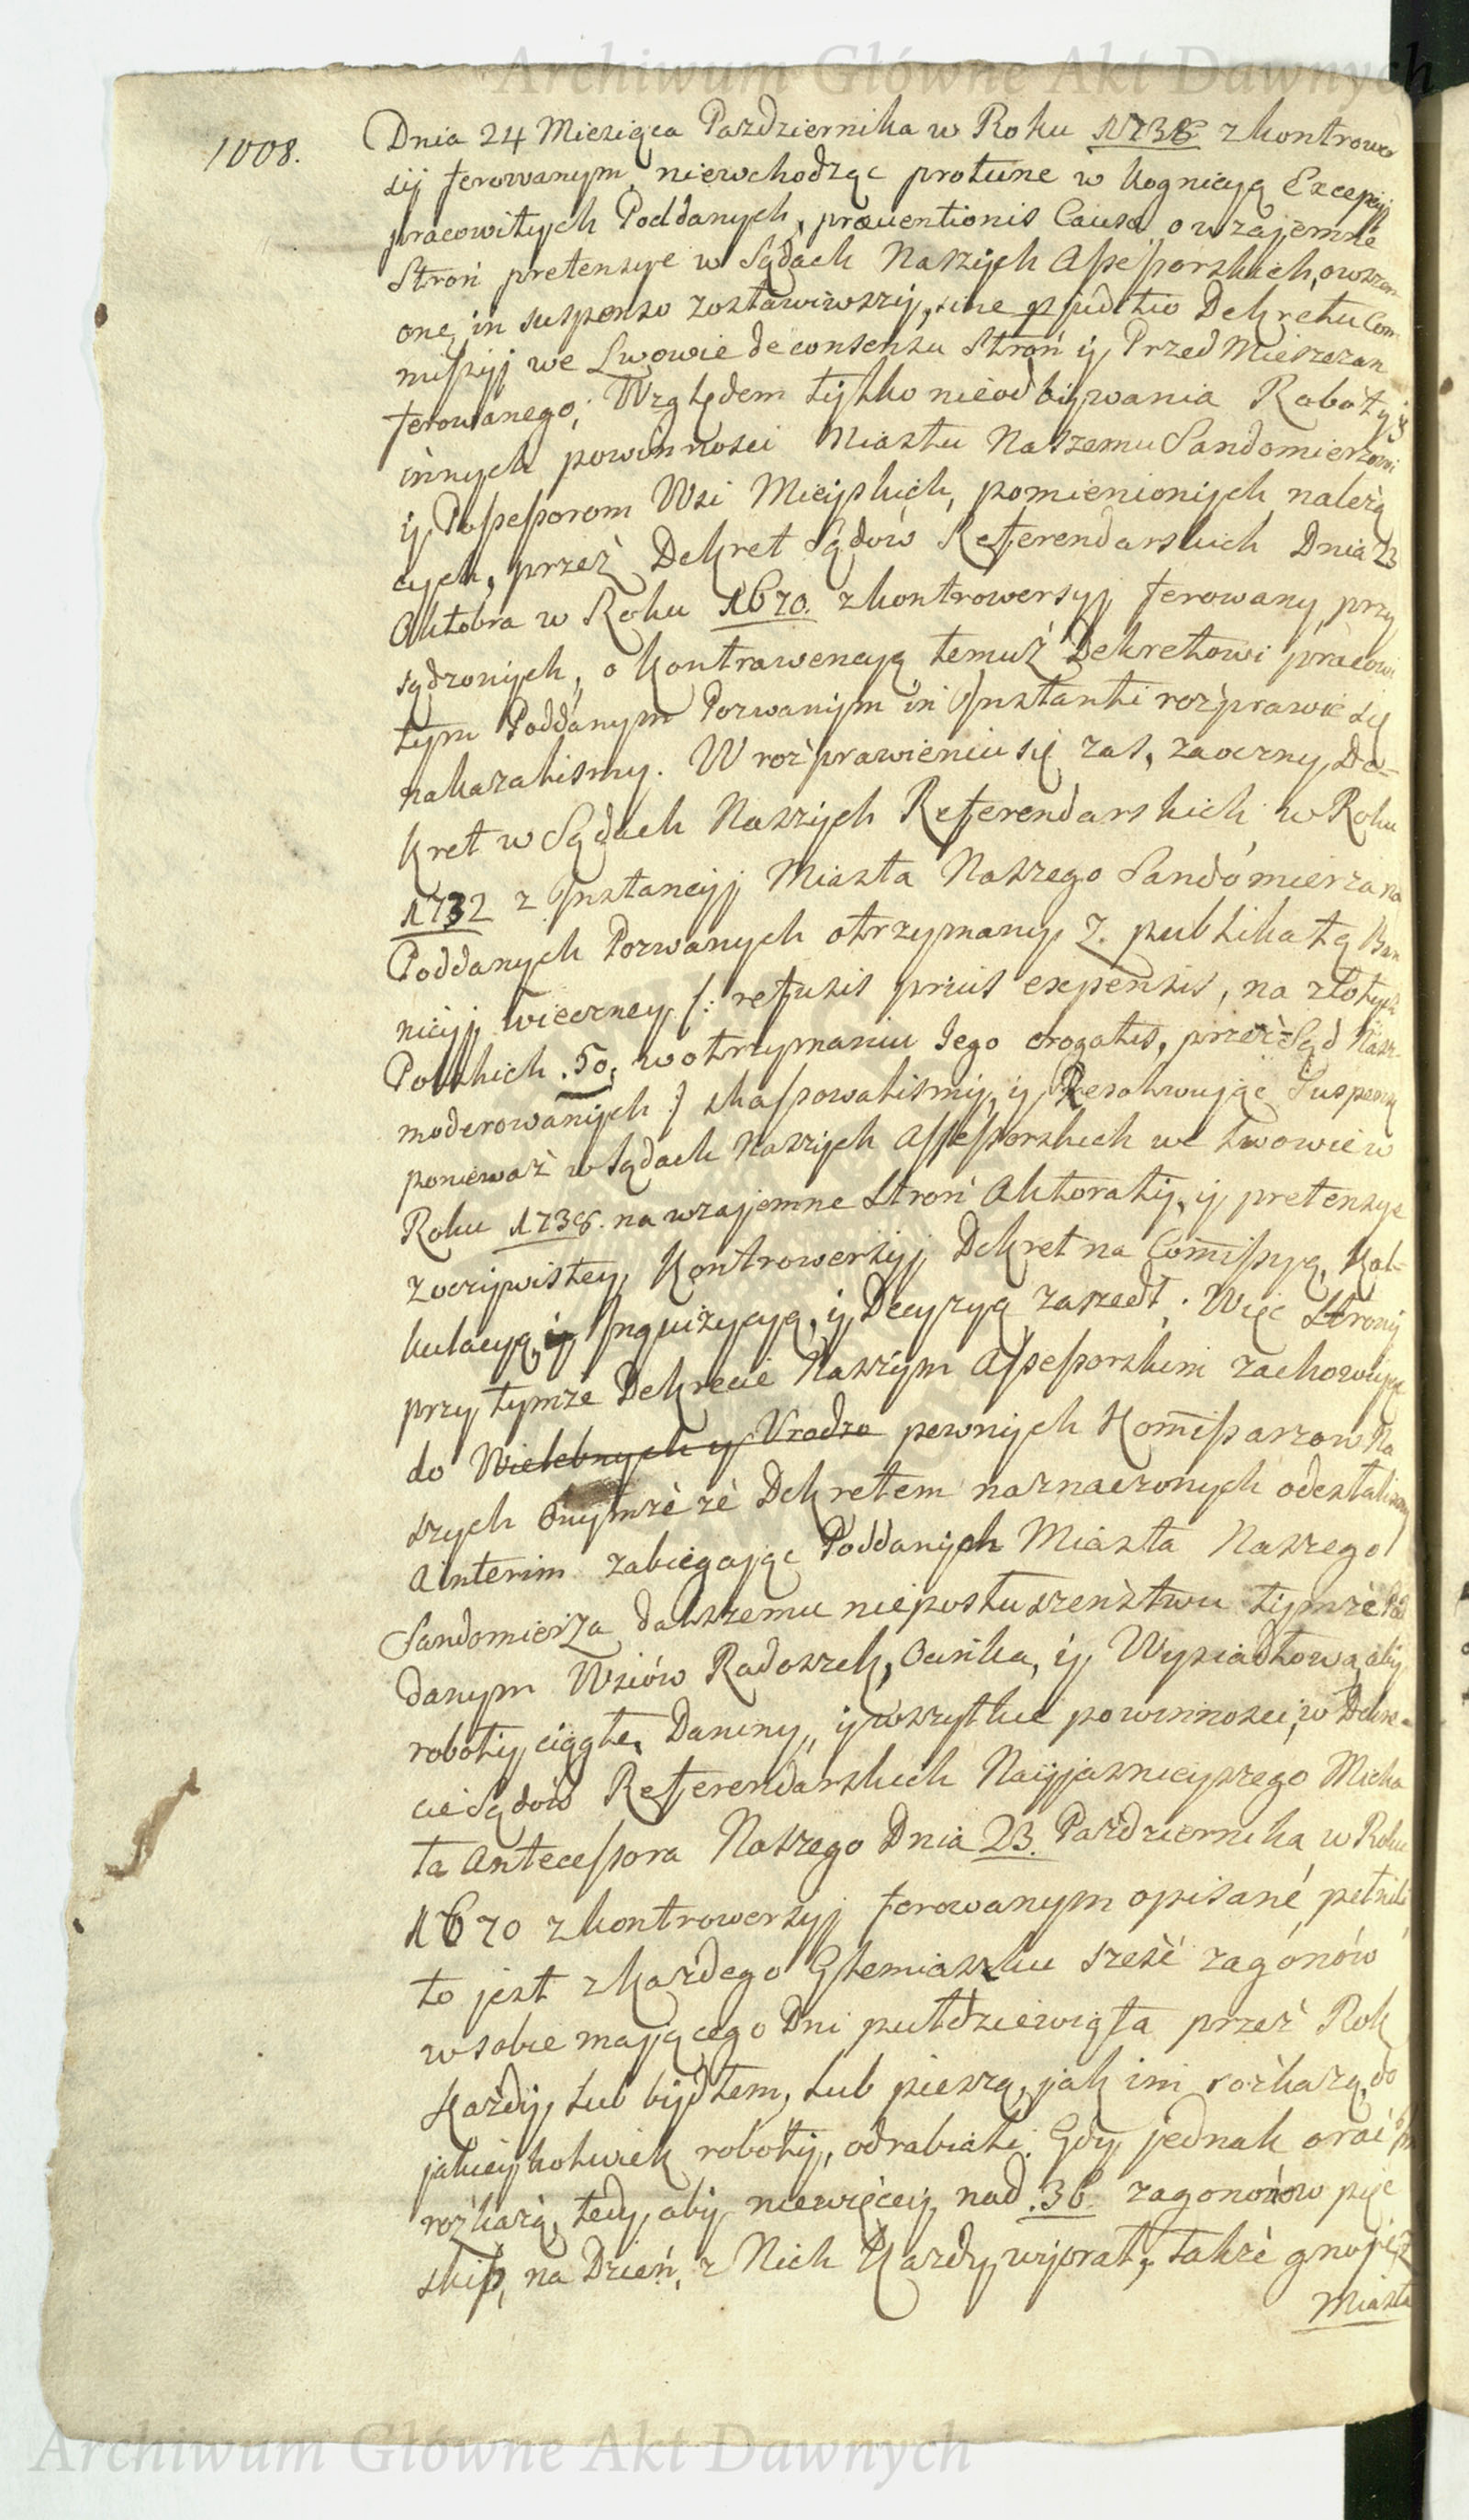 Archiwum Główne Akt Dawnych
1008.
Dnia 24 Miesiąca Pazdziernika w Roku 1738 zkontrower
syj ferowanym, niewchodząc protunc w kognicyą Excepcyi
pracowitych Poddanych, praeventionis Causa, o wzajemne
Stron pretensye w Sądach Naszych Assessorskich, owszem
one in suspenso zostawiwszy, sine Dekretu Com
missyj we Lwowie de consensu Stron y Przed Mieszczan
ferowanego; Względem tylko nieodbywania Roboty y
innych powinnosci Miastu Naszemu Sandomierzowi
y Possessorom Wsi Mieyskich, pomienionych należą
cych, przez Dekret Sądów Referendarskich Dnia 23
Oktobra w Roku 1670. zkontrowersyj ferowany przy
sądzonych, o kontrawencyą temuż Dekretowi pracowi
tym Poddanym Pozwanym in Instanti rozprawić się
nakazalismy. W rozprawieniu się zas, zaoczny De-
kret w Sądach Naszych Referendarskich w Roku
1732 z Instancyj Miasta Naszego Sandomierza na
Poddanych Pozwanych otrzymany z publikatą Ban
nicyj wieczney /: refusis prius expensis, na złotych
Polskich .50. w otrzymaniu Jego erogatis, przez Sąd Nasz
moderowanych :/ skassowalismy, y Rezolwując Suspensę
ponieważ w Sądach Naszych Assessorskich we Lwowie w
Roku 1738. na wzajemne Stron Aktoraty, y pretensye
z oczywistey Kontrowersyj Dekret na Comissyą, Kal-
kulacyą, y Inquizycyą, y Decyzyą zaszedł. Więc Strony
przy tymże Dekrecie Naszym Assessorskim zachowując
do Wielebnych y Urodzo pewnych Komissarzow Na
szych tymże Dekretem naznaczonych odesłalismy
Ainterim zabiegając Poddanych Miasta Naszego
Sandomierza dalszemu nieposłuszenstwu tymże Pod
danym Wsiów Radoszek, Ocinka, y Wysiadłowa, aby
roboty, ciągłe, Daniny, y wszystkie powinnosci, w Dekre-
cie Sądów Referendarskich Nayjasnieyszego Micha
ła Antecessora Naszego Dnia 23. Pazdziernika w Roku
1670 zkontrowersyj ferowanym opisane, pełnili
to jest zkazdego Głemiaszku szesć zagonów
w sobie mającego Dni pułdziewięta przez Rok
Kazdy, lub bydłem, lub pieszą, jak im rozkarzą, do
jakieykolwiek roboty, odrabiali. Gdy jednak orać im
rozkarzą, tedy aby niewięcey nad .36. zagononow pięc
skib, na Dzień, z Nich Kazdy wyorał, także gnoje z
Miasta
Archiwum Główne Akt Dawnych